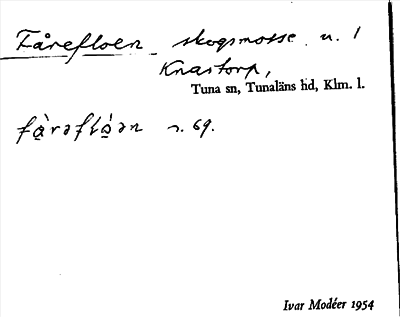 Fårefloen skogsmosse u. 1
Knastorp,
Tuna sn, Tunaläns hd, Klm. l.
69.
Ivar Modéer 1954